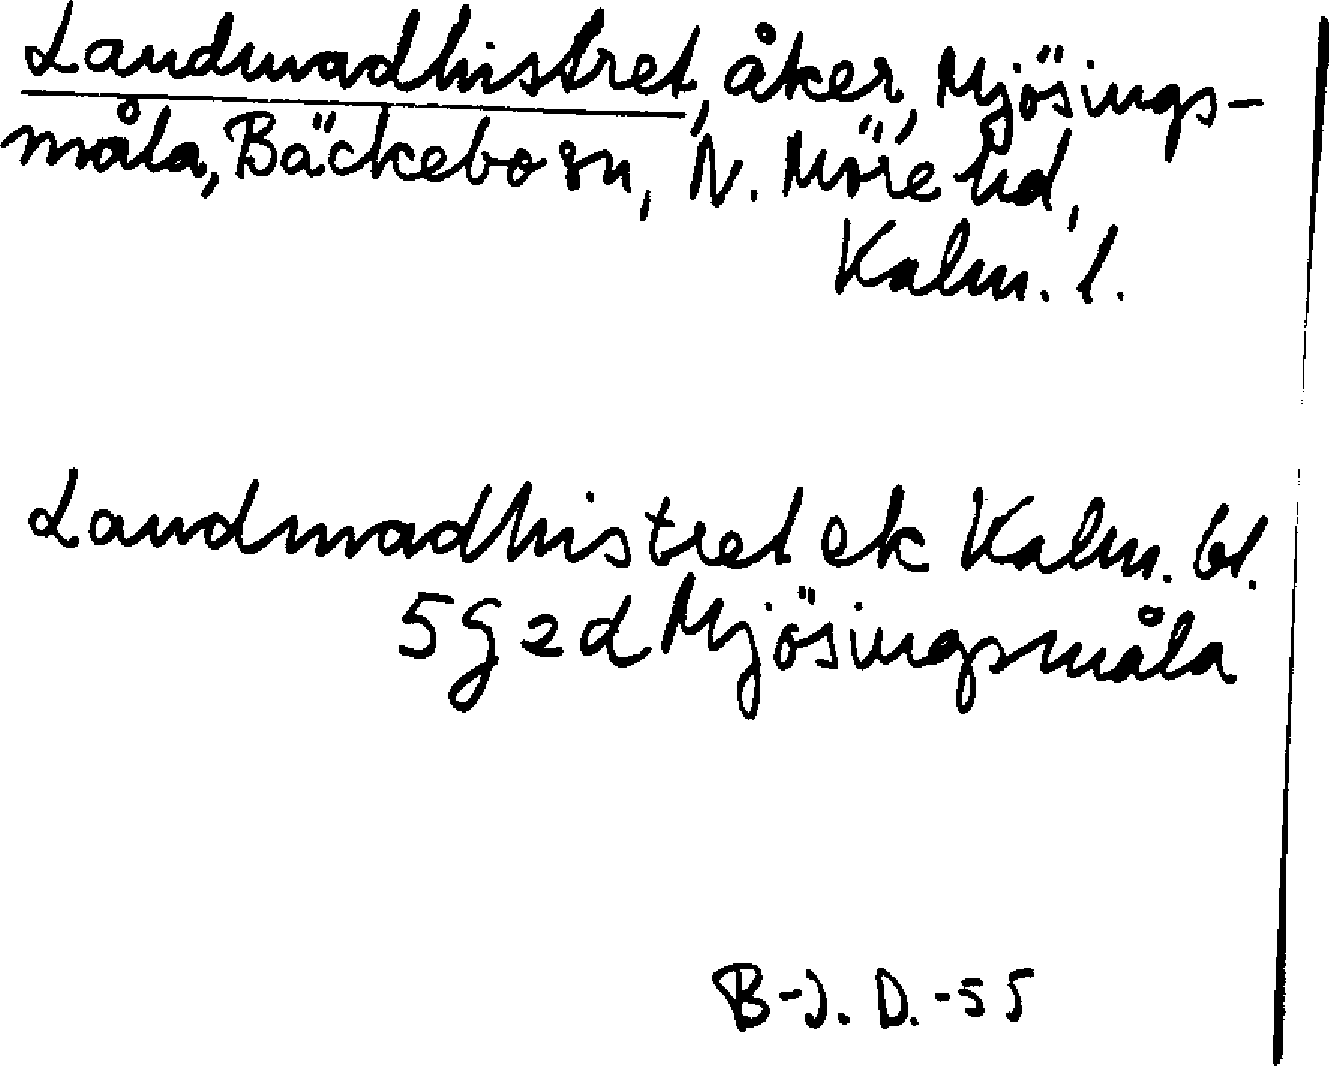 Landmadhistret, åker, Mjösings-
måla, Bäckebo sn, N. Möre hd,
Kalm. l.
Landmadhistret ek Kalm. bl.
5 g 2 d Mjösingsmåla
B-J. D. -55